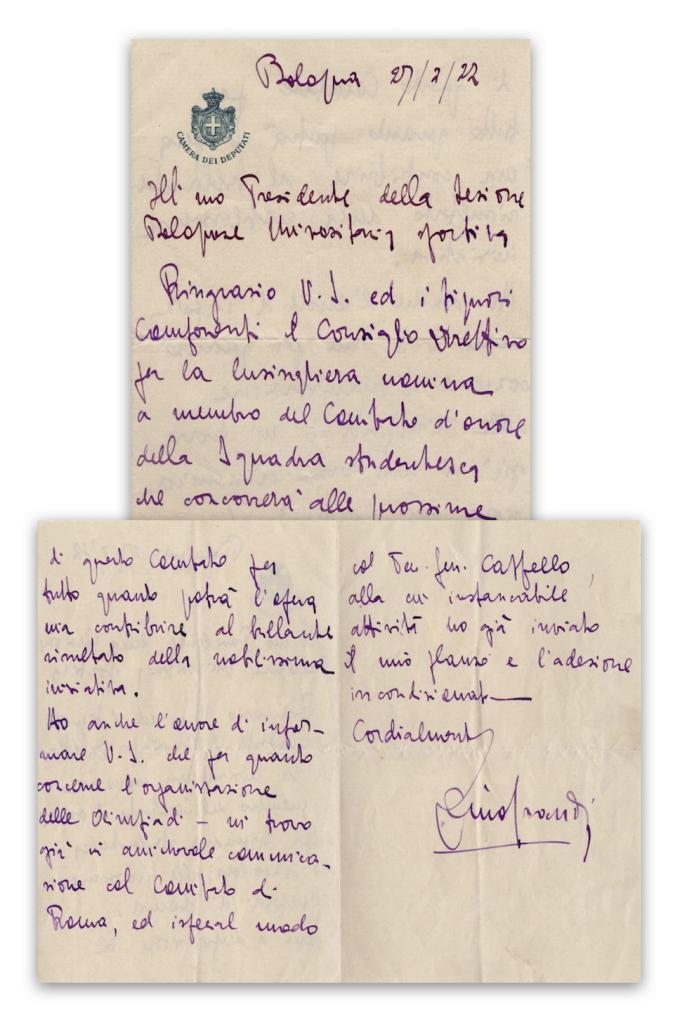 Bologna 27/2/22
CAMERA DEI DEPUTATI
Ill mo Presidente della Sezione
Bolognese Universitaria sportiva
Ringrazio V. S. ed i signori
Componenti il Consiglio Direttivo
per la lusinghiera nomina
a membro del Comitato d'onore
della Squadra studentesca
che concorrerà alle prossime
di questo Comitato per
tutto quanto potrà l'opera
mia contribuire al brillante
risultato della nobilissima
iniziativa.
Ho anche l'onore di infor-
mare V. S. che per quanto
concerne l'organizzazione
delle Olimpiadi — mi trovo
già in amichevole comunica-
zione col Comitato di
Roma, ed in special modo
col Ten. Gen. Cappello,
alla cui instancabile
attività ho già inviato
il mio plauso e l'adesione
incondizionata
Cordialmente
Dino Grandi